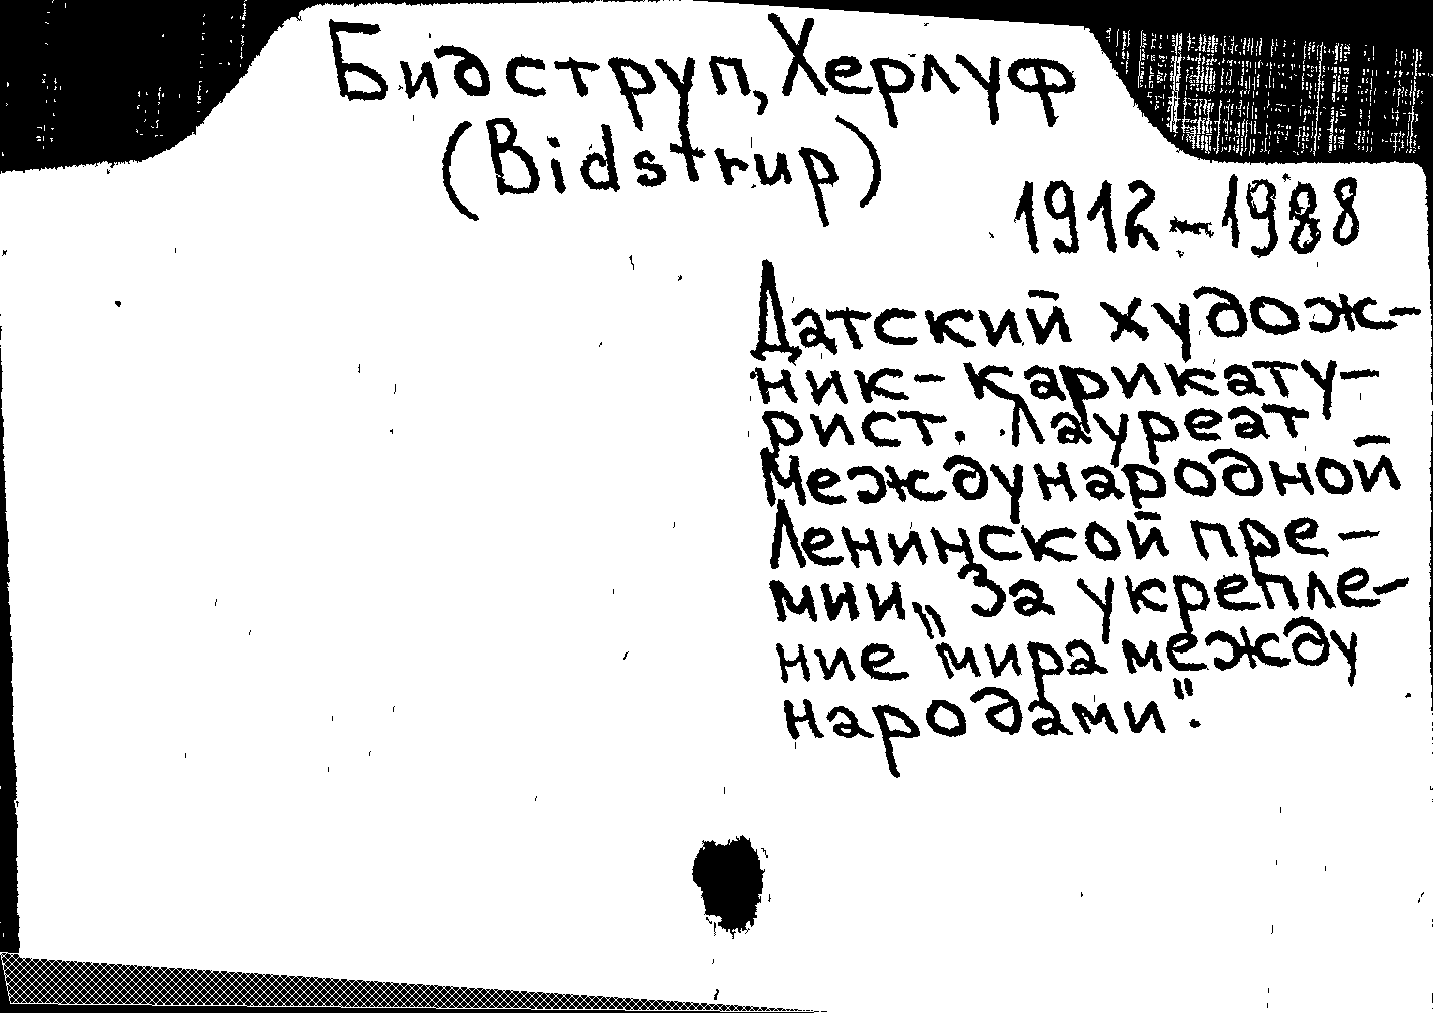 Бидструп, Херлуф
(Bidstrup)
1912-1988
Датский худож-
ник-карикату-
рист. Лауреат
Международной
Ленинской пре-
мии „За укрепле-
ние мира между
народами".